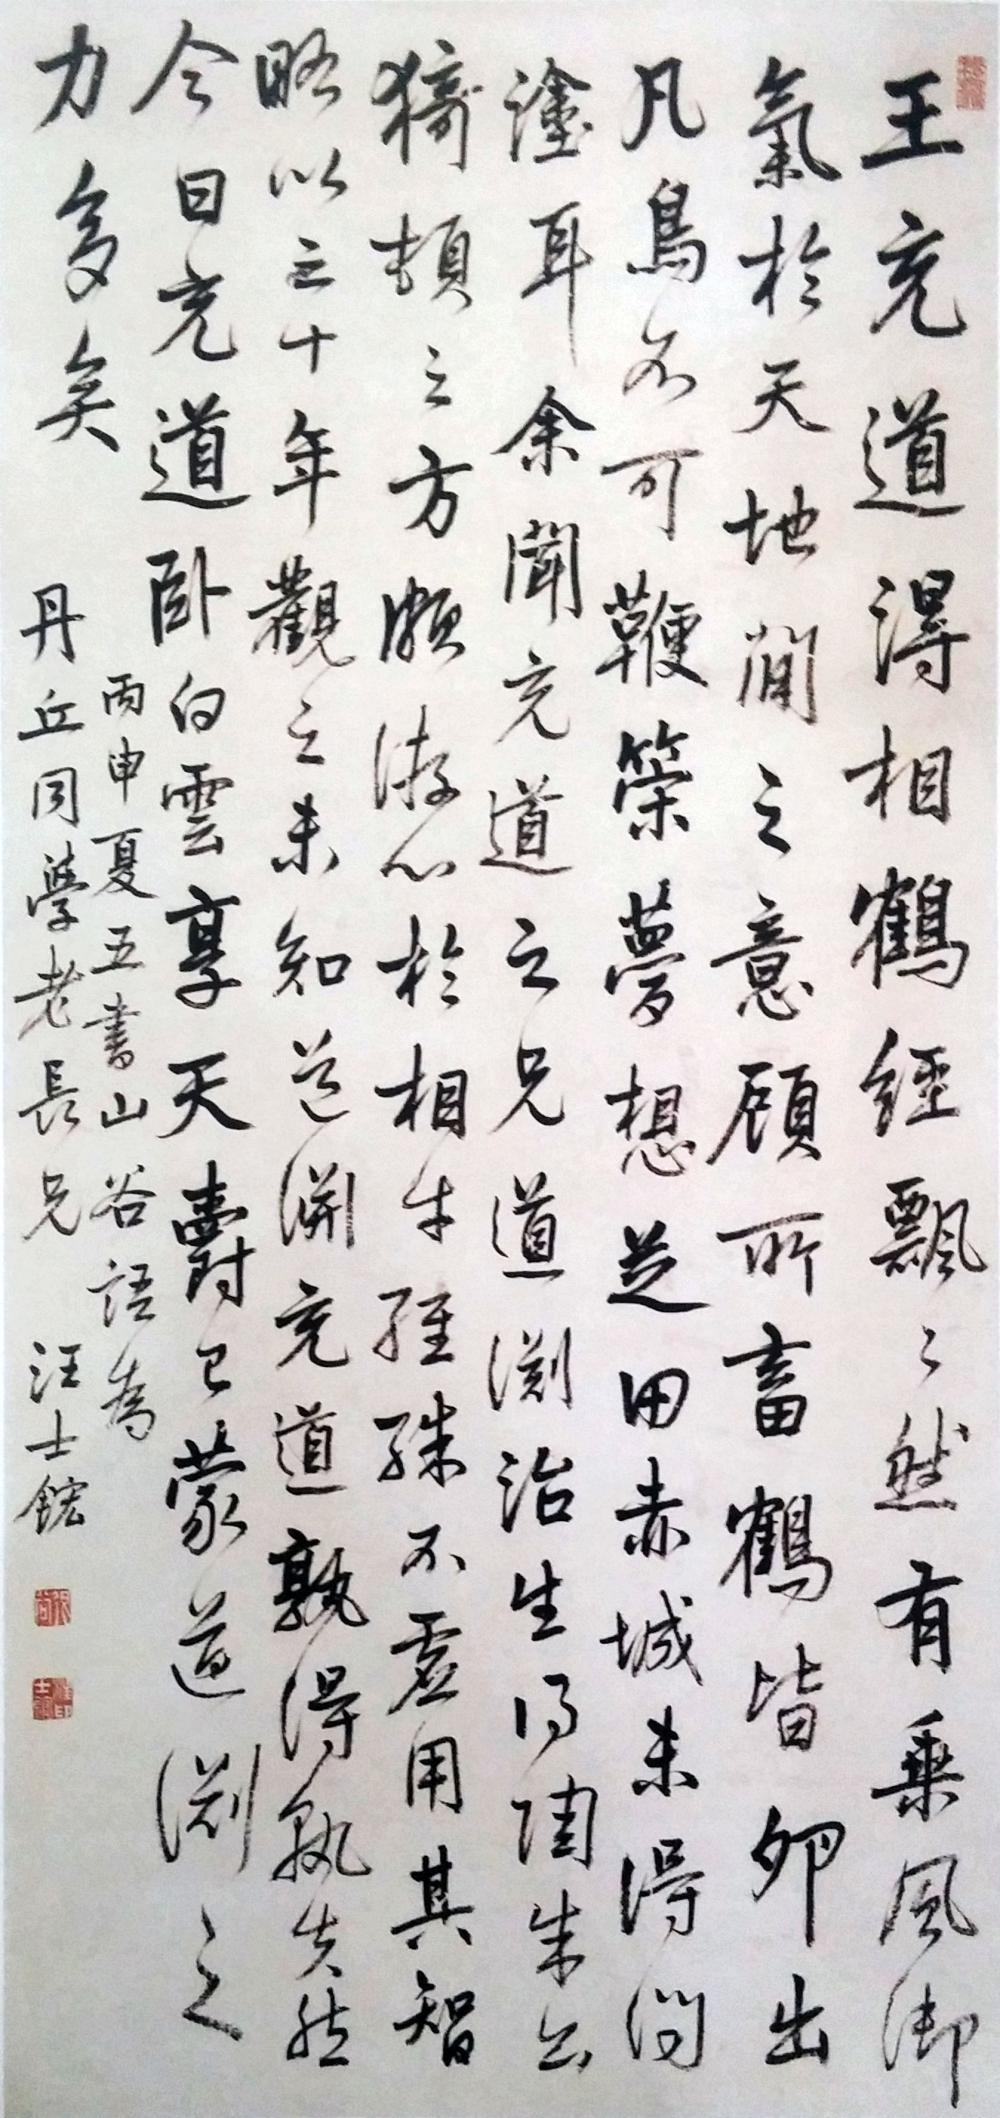 王充道得相鶴經飄〻然有乘風御
氣於天地間之意顧所畜鶴皆卵出
凡鳥不可鞭策夢想芝田赤城未得問
塗耳余聞充道之兄道淵治生得陶朱公
猗頓之方頗游心於相牛經殊不虛用其智
略以三十年觀之未知道淵充道孰得孰失然
今日充道臥白雲享天爵已蒙道淵之
力多矣
丙申夏五書山谷語為
丹丘同學老長兄 汪士鋐